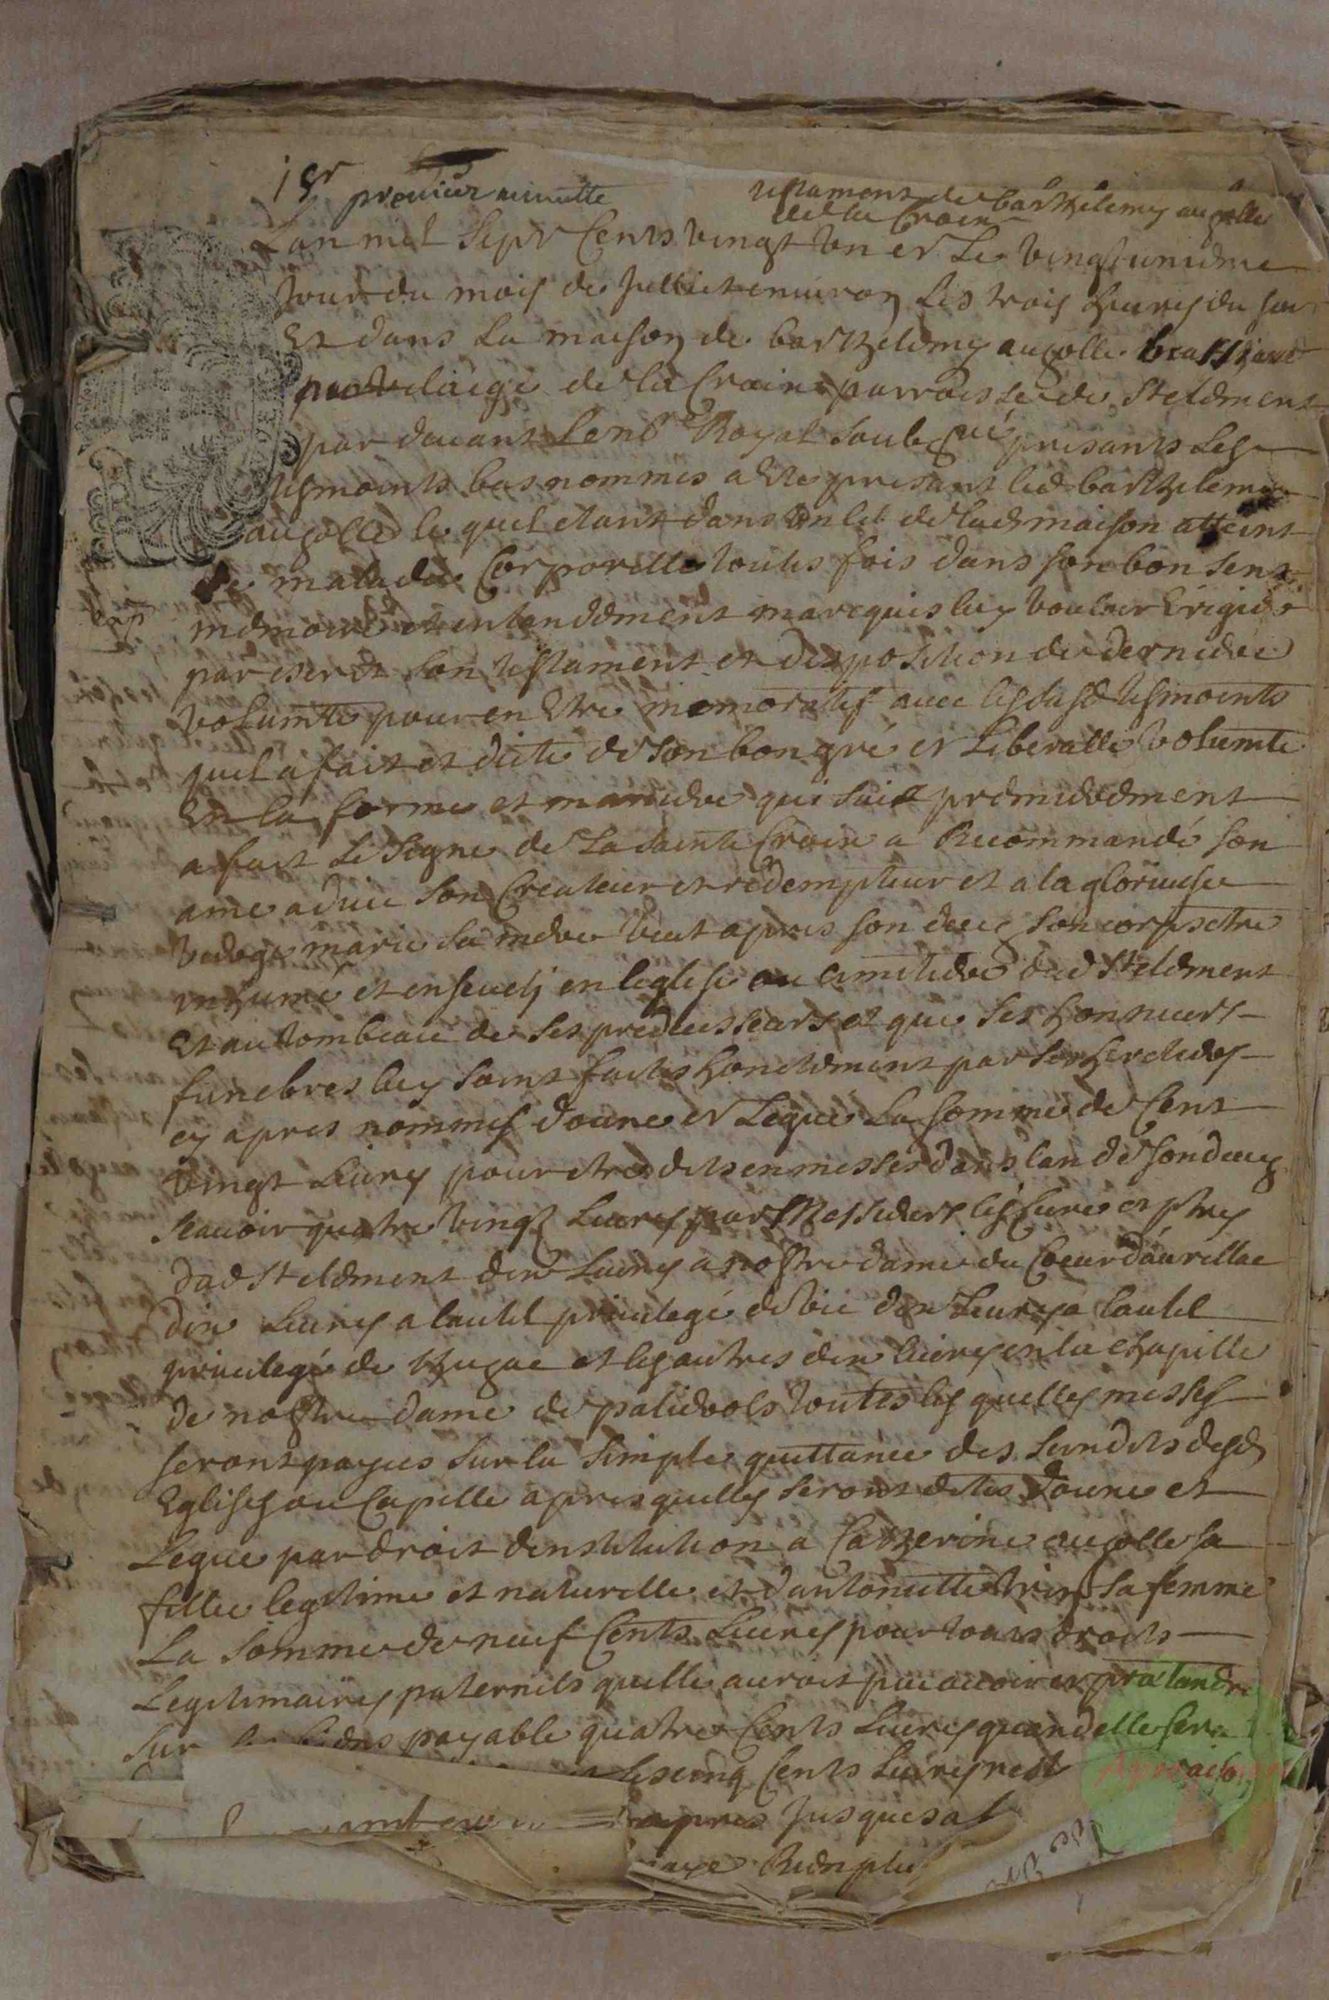 1er premier minutte
testament de barthelemy augolle
de la Croix
Lan mil Sept Cents vingt un et Le vingtunieme
Jour du mois de Juilliet enuiron Les trois heures du soir
Et dans La maison de barthelemy augolle brassier
du vilaige de la Croix parroisse de St element
par deuant le nore Royal soubsné presants Les
tesmoints bas nommes a Este presant led barthelemy
augolle le quel etant dans un lit de lad maison atteint
de maladie Corporelle toutes fois dans son bon sens
memoire et entendement ma requis luy vouloir Erigier
par escrit son testament et disposition de derniere
volumte pour en Etre memoratif auec lesdusd tesmoints
quil a fait et dicté de son bon gré et Liberalle volumte
En la forme et maniere qui suit premierement
a fait Le signe de La sainte Croix a Recommandé son
ame a dieu son Createur et redempteur et a la glorieuse
vierge marie sa mere veut apres son deces son corps etre
inhumé et enseuely en leglise ou cimitiere dud St element
Et au tombeau de ses predecesseurs et que ses honnuers
funebres luy soint faites honetement par ses heretieres
cy apres nommes donne et Legue La somme de Cent
vingt Liures pour etre dits en messes dans lan de son deces
scauoir quatre vingt Liures par Messieurs les Cure et ptres
dud St element dix Liures a nostre dame du Coeur daurillac
dix Liures a lautel priuilegé de vic dix Liures a lautel
priuilegé de thegac et les autres dix liures en la chapelle
de nostre dame de palierols toutes les quelles messes
seront payees sur la simple quittance des sendits desd
Eglises ou Capelle apres quelles seront dites donne et
Legue par droit dinstitution a Catherine augolle sa
fillie legitime et naturelle et dantoinette sa femme
La somme de neuf Cents Liures pour touts droits
Legitimaires paternels quelle auroit pu auoir et pretandre
sur biens payable quatre Cents Liures quand elle sera
Les cinq Cents Liures rest
apres Jusques a
paye Rien plus